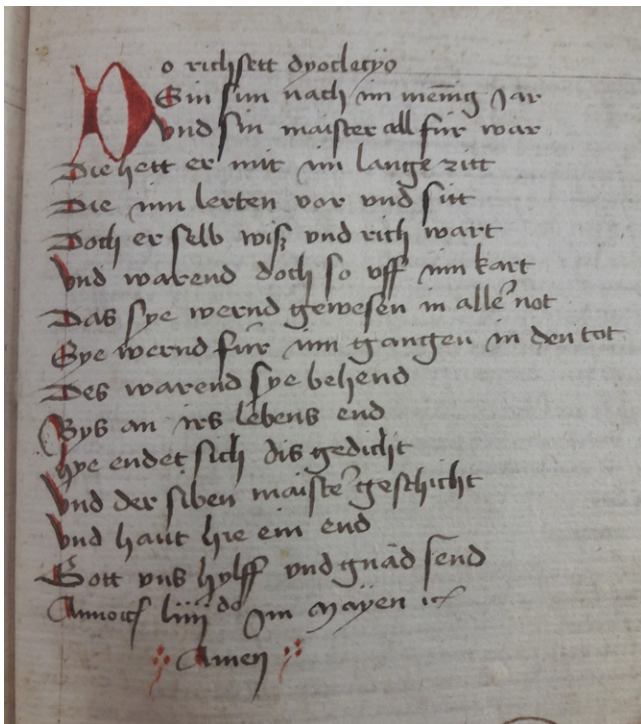 Do richsett dyocletyo
Sin sun nach im menig Jar
Vnd sin maister all fur war
Die hett er mit im lange zitt
Die inn lerten vor vnd sitt
Doch er selb wiß vnd rich wart
Vnd warend doch so vff inn kart
Das sye wernd gewesen in alle not
Sye wernd für inn gangen in den tot
Des warend sye behend
Bys an irs lebens end
hye endet sich dis gedicht
Vnd der siben maiste geschicht
Vnd haut hie ein end
Gott vns hylff vnd gnäd send
Anno liiij do Im Mayen
Amen